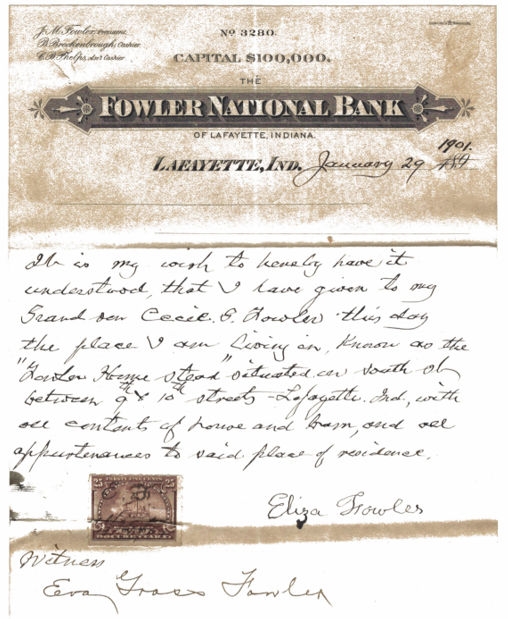 J. M. Fowler, President.
B. Brockenbrough, Cashier.
C. B. Phelps, Ass't Cashier
No 3280.
CAPITAL $100,000.
THE
FOWLER NATIONAL BANK
OF LAFAYETTE, INDIANA.
LAFAYETTE, IND. January 29 1901.
It is my wish to hereby have it
understood, that I have given to my
Grand son Cecil G. Fowler this day
the place I am living on, know as the
"Fowler Home stead" situated on south st
between 9th & 10th streets - Lafayette. Ind, with
all contents of house and barn, and all
appurtenances to said place of residence.
Eliza Fowler
DOCUMENTARY
Witness
Eva Gross Fowler